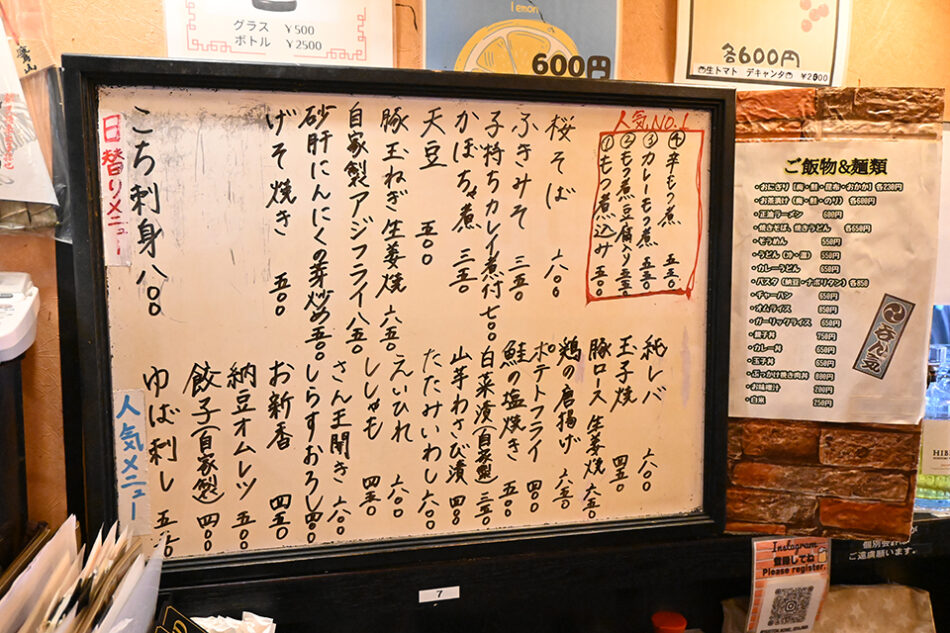 グラス ¥500
ボトル ¥2500
lemon
600円
各600円
生トマト デキャンタ ¥2000
人気No.1
④辛もつ煮 五五〇
③カレーもつ煮 五五〇
②もつ煮豆腐入り 五五〇
①もつ煮込み 五〇〇
桜そば 六〇〇
ふきみそ 三五〇
子持ちカレイ煮付 七〇〇
かぼちゃ煮 三五〇
天豆 五〇〇
豚玉ねぎ生姜焼 六五〇
自家製アジフライ 八五〇
砂肝にんにくの芽炒め 五五〇
げそ焼き 五〇〇
日替りメニュー
こち刺身 八〇〇
純レバ 六〇〇
玉子焼 四五〇
豚ロース生姜焼 六五〇
鶏の唐揚げ 六五〇
ポテトフライ 四〇〇
鮭の塩焼き 五〇〇
白菜漬(自家製) 三五〇
山芋わさび漬 四〇〇
たたみいわし 六〇〇
えいひれ 六〇〇
ししゃも 四五〇
さんま開き 六〇〇
しらすおろし 四〇〇
お新香 四五〇
納豆オムレツ 五〇〇
餃子(自家製) 四〇〇
ゆば刺し 五五〇
人気メニュー
ご飯物&麺類
・おにぎり(梅・鮭・昆布・おかか)各230円
・お茶漬け(梅・鮭・のり) 各600円
・正油ラーメン 600円
・焼きそば、焼きうどん 各650円
・そうめん 550円
・うどん(冷・温) 550円
・カレーうどん 650円
・パスタ(納豆・ナポリタン)各850
・チャーハン 650円
・オムライス 850円
・ガーリックライス 650円
・餃子丼 750円
・カレー丼 650円
・玉子丼 650円
・ぶっかけ焼き肉丼 800円
・お味噌汁 200円
・白米 250円
なん丸
7
Instagram
登録してね
Please register.
個別会計は
ご遠慮願います。